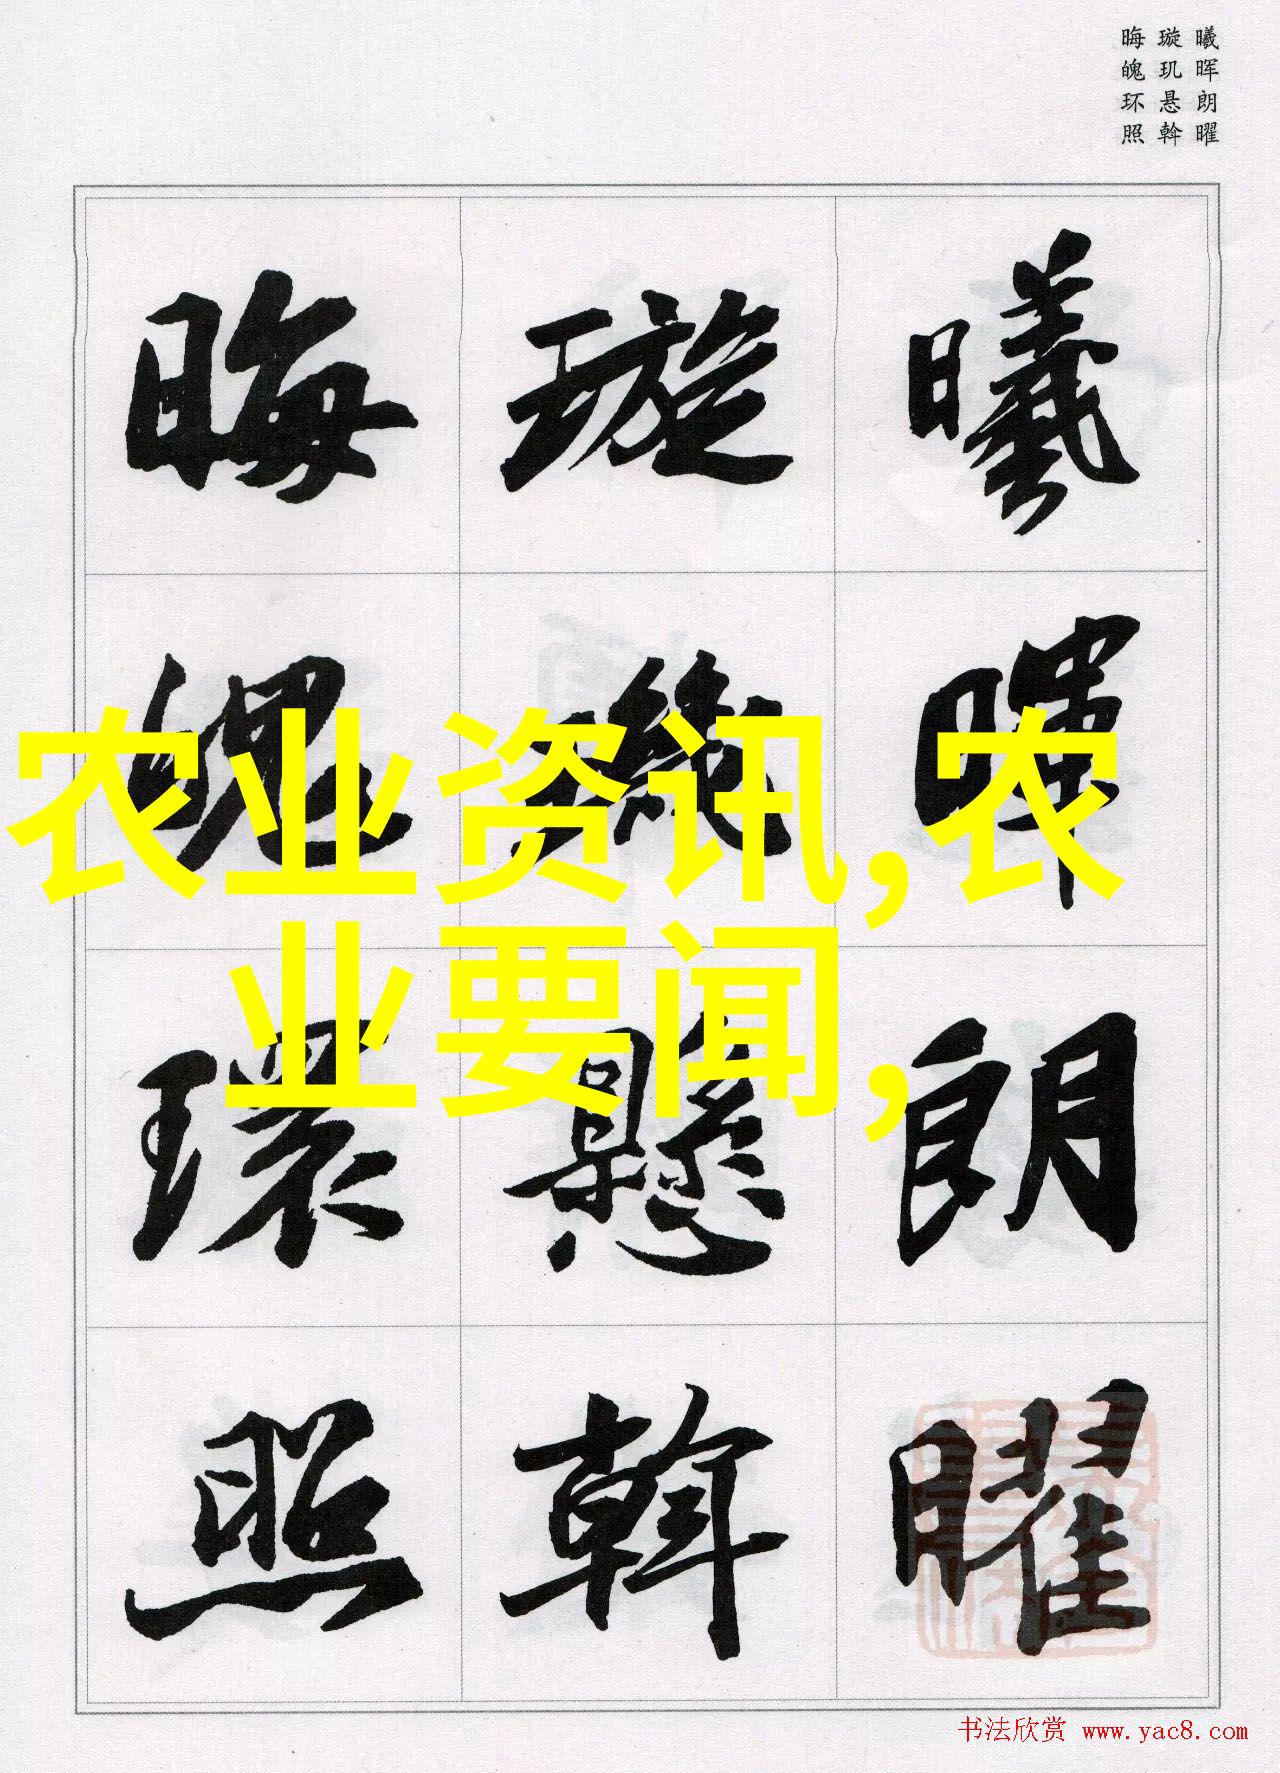 曦 璇 晦
晖 玑 魄
朗 悬 环
曜 斡 照
曦暉朗曜
璇璣懸斡
晦魄環照
农业资讯,农
业要闻,
书法欣赏 www.yac8.com